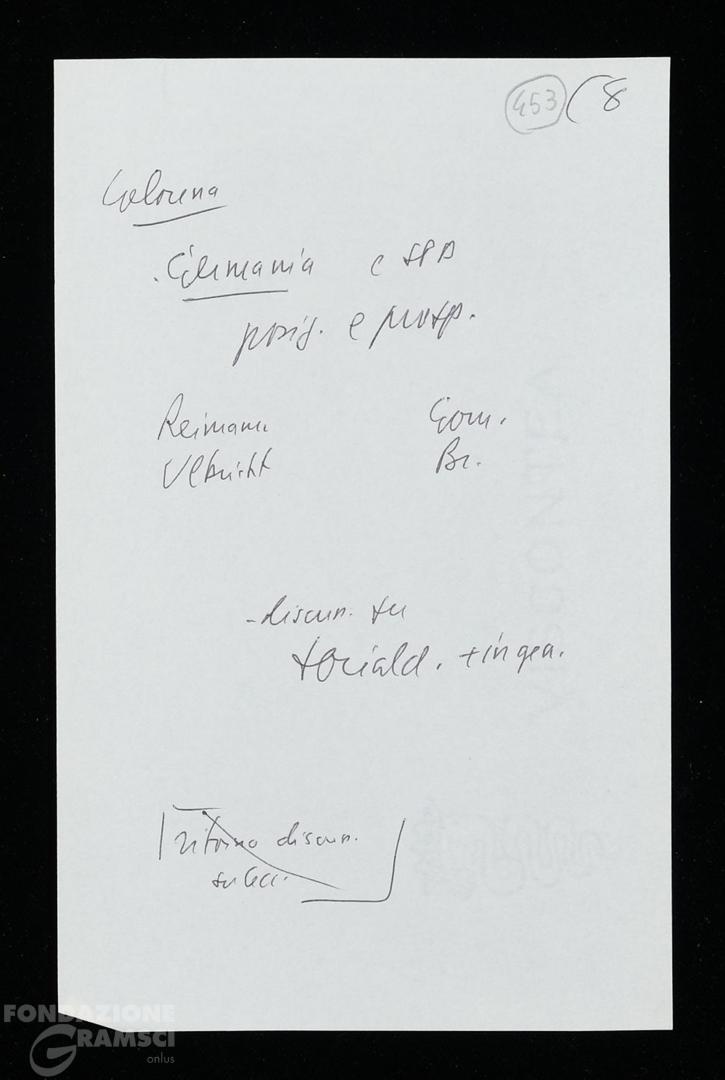 453 (8
Germania e SPD
posiz. e prosp.
Reimann. Gom.
Ulbricht Br.
- discus. su
sociald. + in gen.
ritorno discus.
su
FONDAZIONE
GRAMSCI
onlus